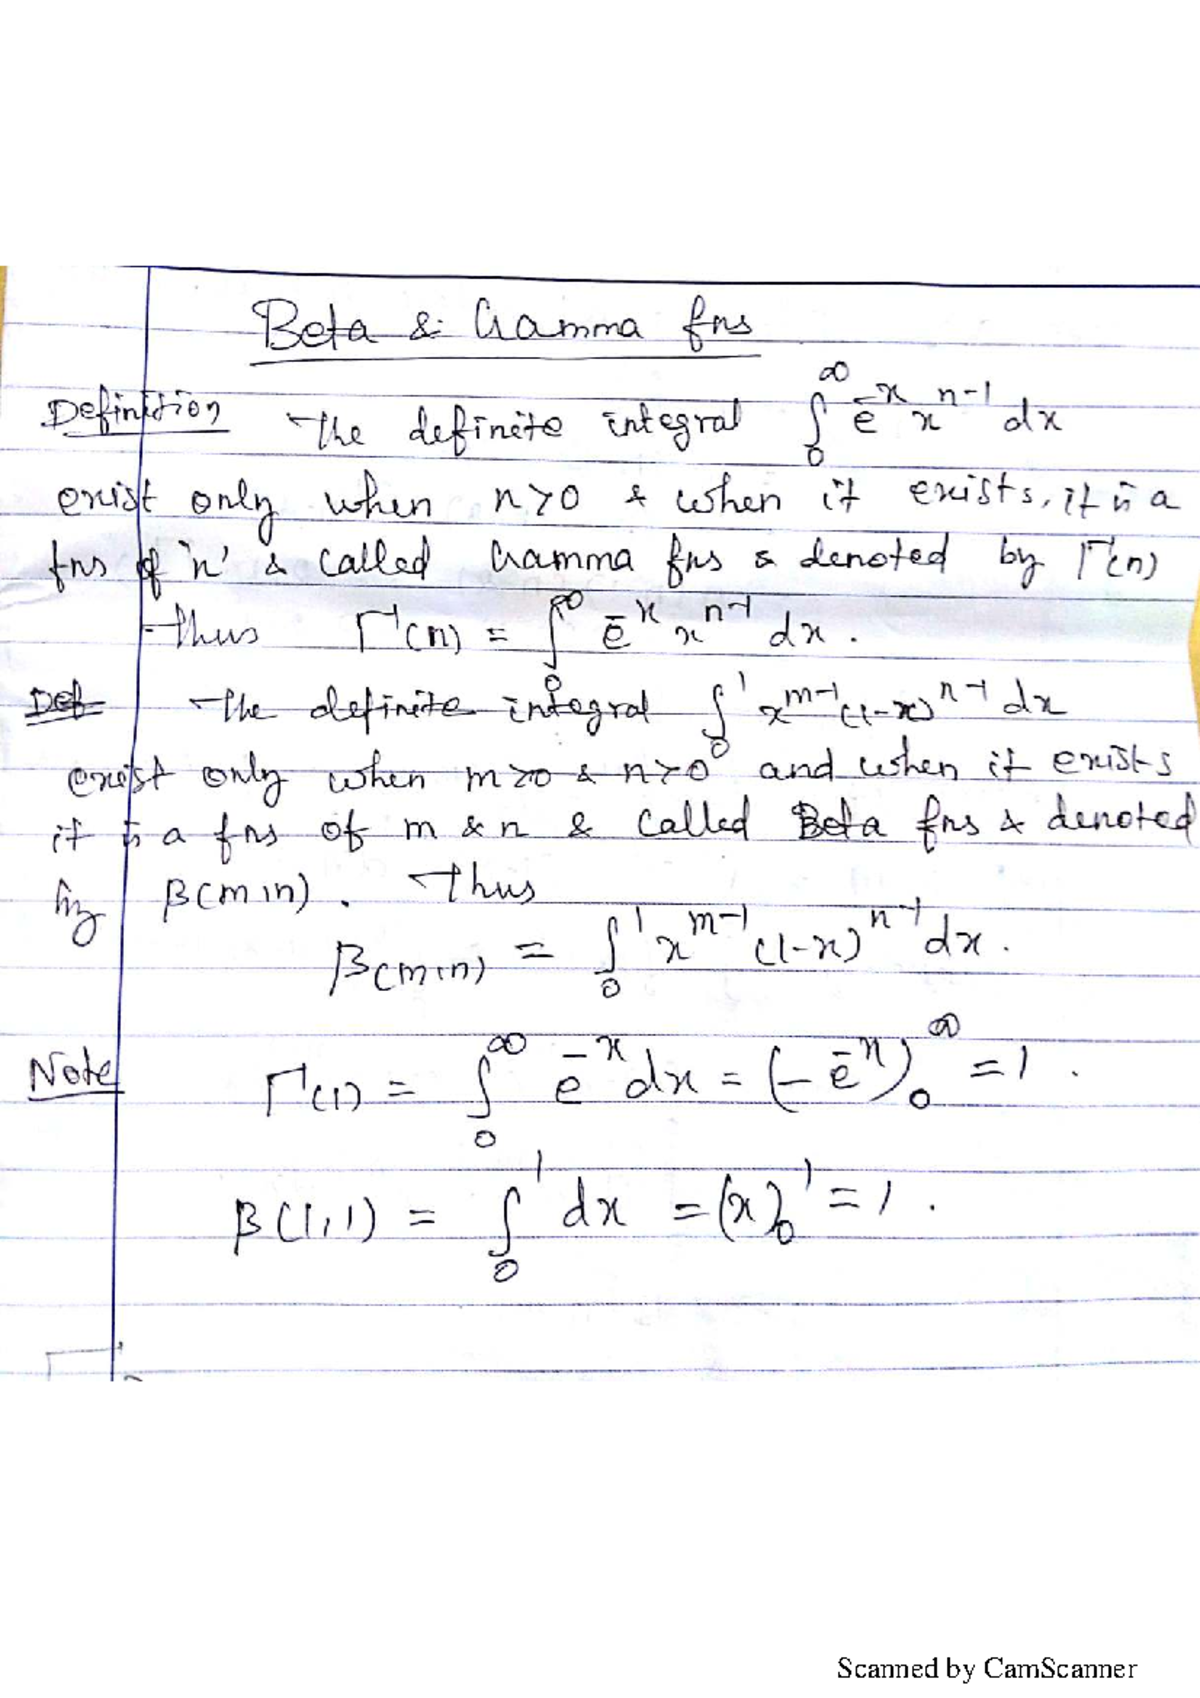 Beta & Gamma fns
Definition The definite integral ∫₀^∞ e^-x x^n-1 dx
exist only when n>0 & when it exists, it is a
fns of 'n' & called Gamma fns & denoted by Γ(n)
Thus Γ(n) = ∫₀^∞ e^-x x^n-1 dx.
Def The definite integral ∫₀^1 x^m-1 (1-x)^n-1 dx
exist only when m>0 & n>0 and when it exists
it is a fns of m & n & called Beta fns & denoted
by β(m,n). Thus
β(m,n) = ∫₀^1 x^m-1 (1-x)^n-1 dx.
Note Γ(1) = ∫₀^∞ e^-x dx = (-e^-x)₀^∞ = 1.
β(1,1) = ∫₀^1 dx = (x)₀^1 = 1.
Scanned by CamScanner